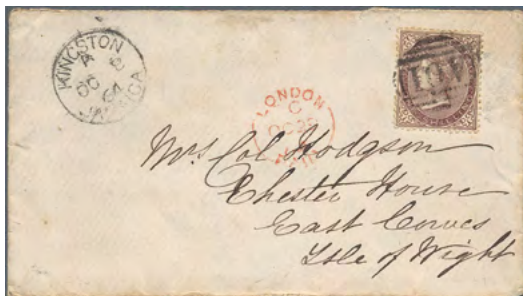 KINGSTON
A
8
OC
64
JAMAICA
LONDON
C
OC 29
A01
Mrs Col. Hodgson
Chester House
East Cowes
Isle of Wight